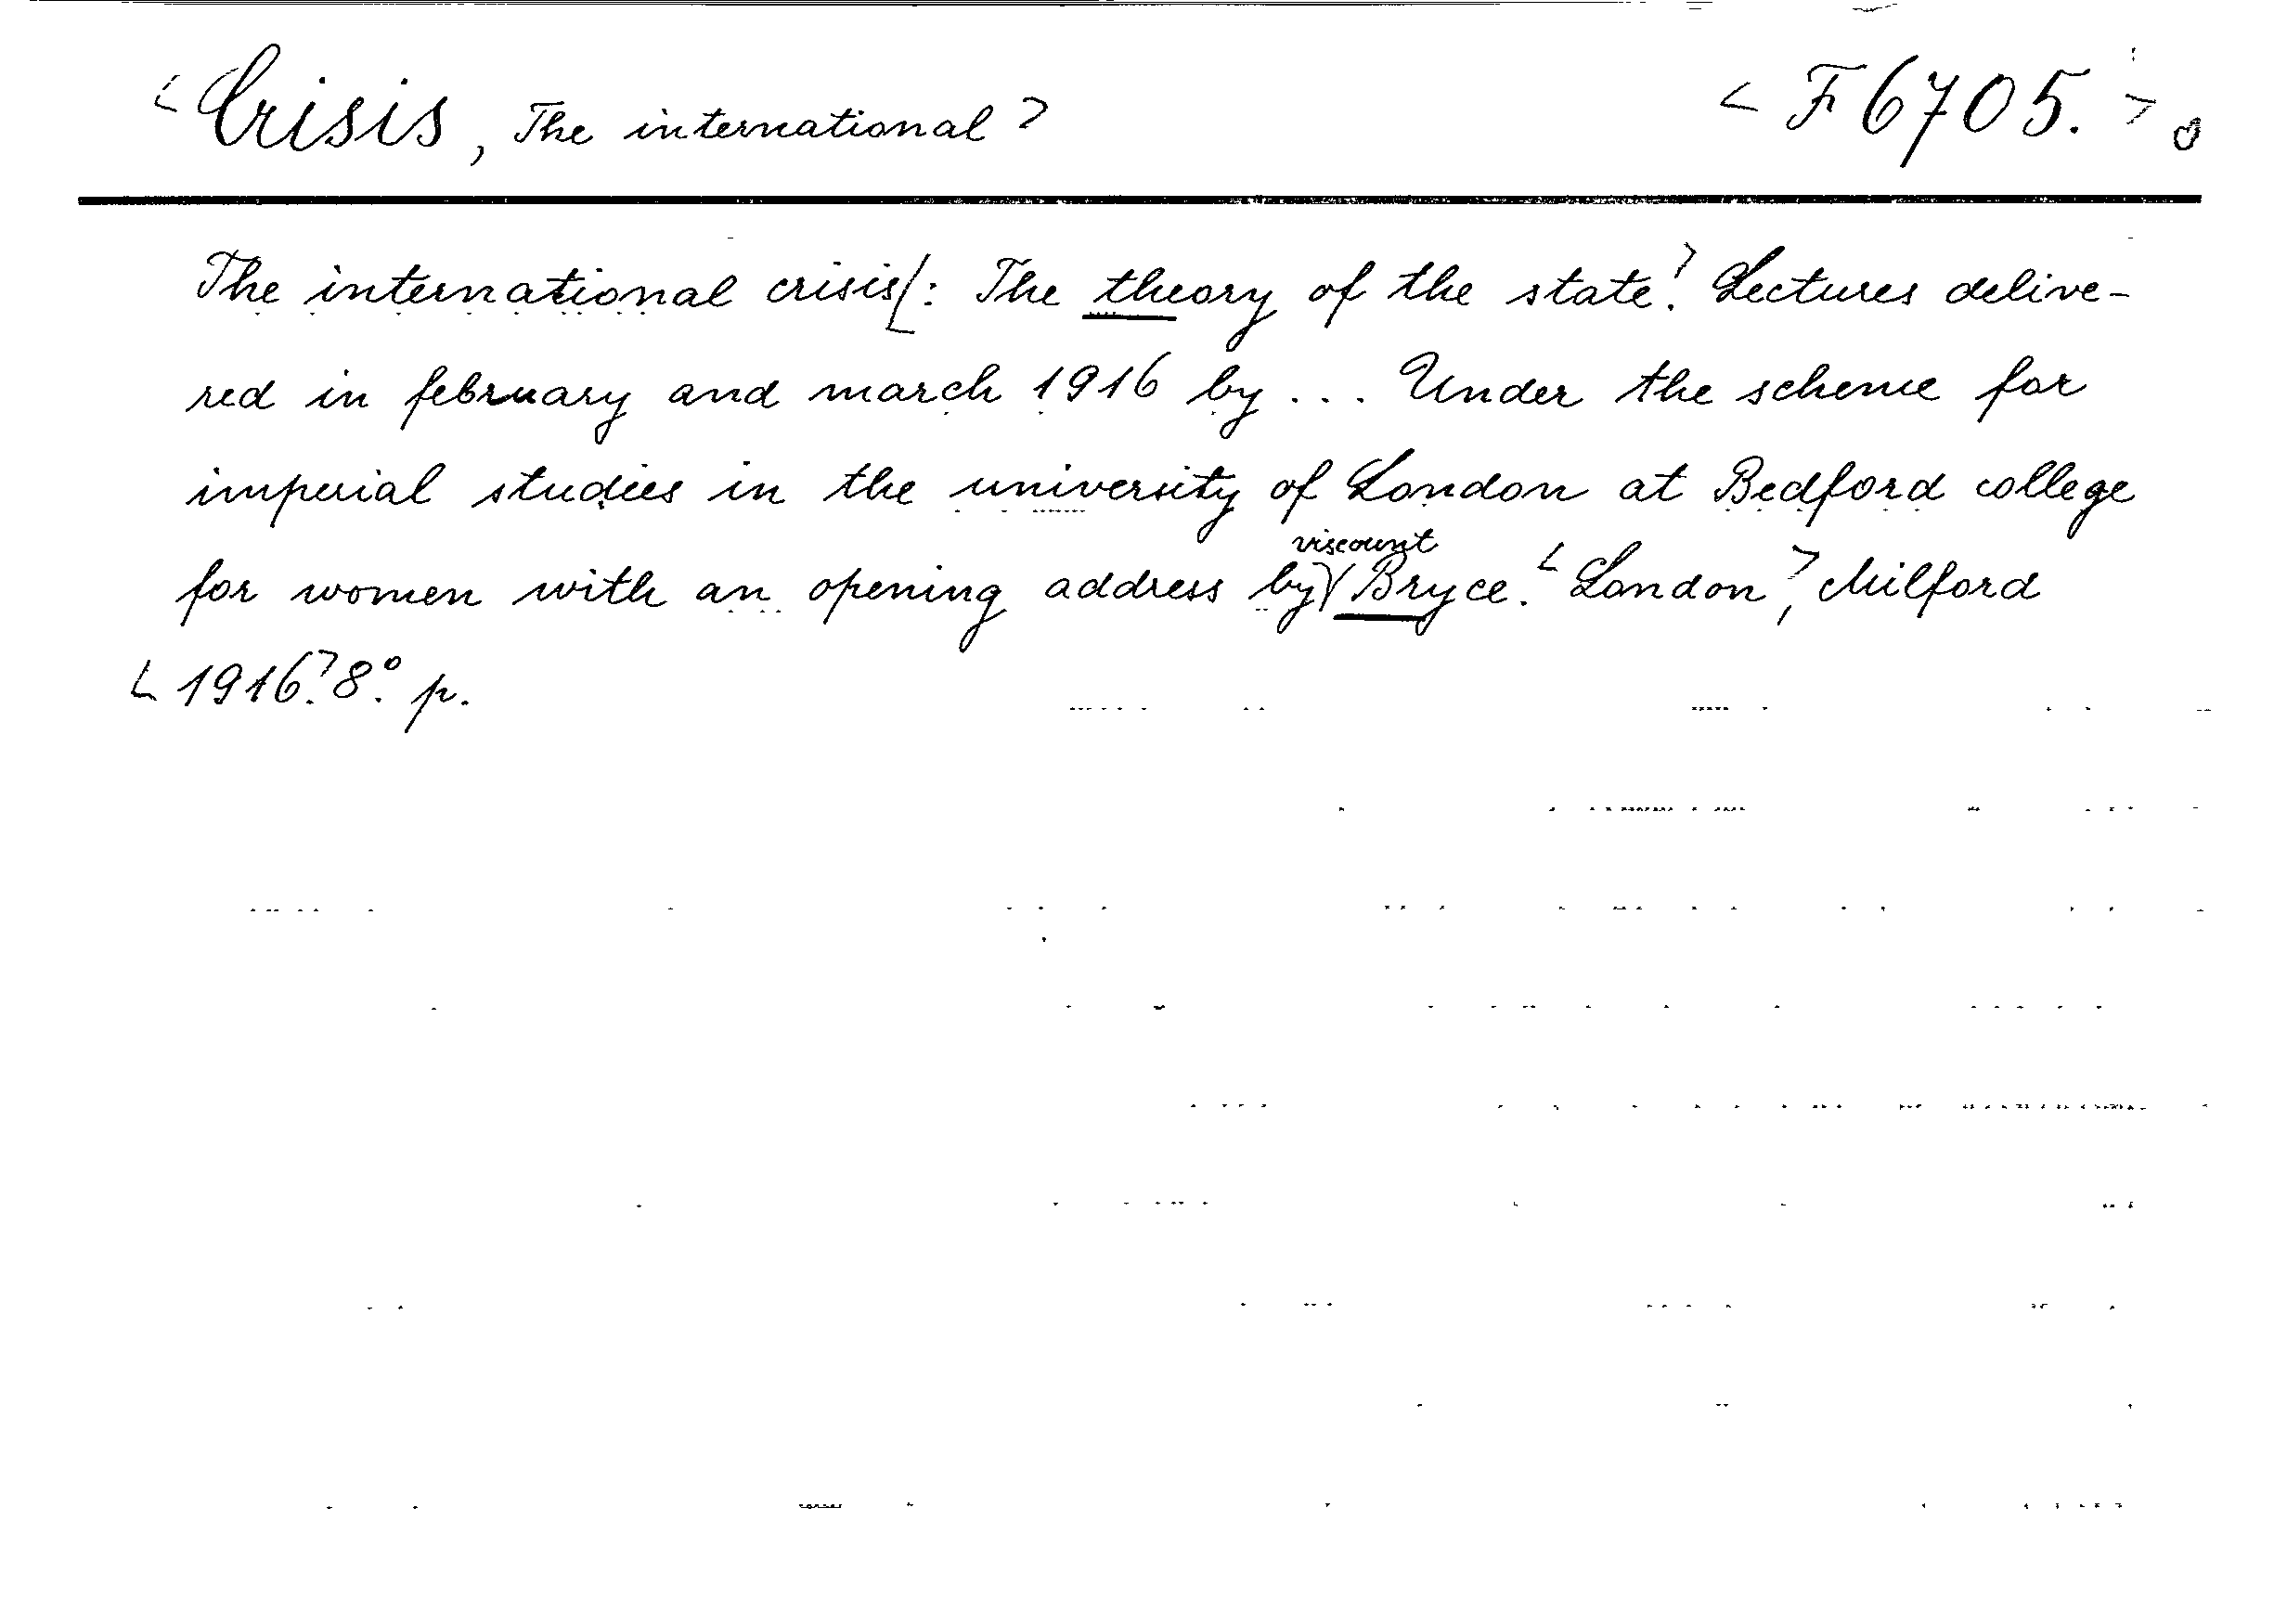 < Crisis, The international > < F 6705. >
The international crisis [: The theory of the state. > Lectures delive-
red in february and march 1916 by ... Under the scheme for
imperial studies in the university of London at Bedford college
for women with an opening address by viscount Bryce. < London >, Milford
< 1916. > 8°. p.